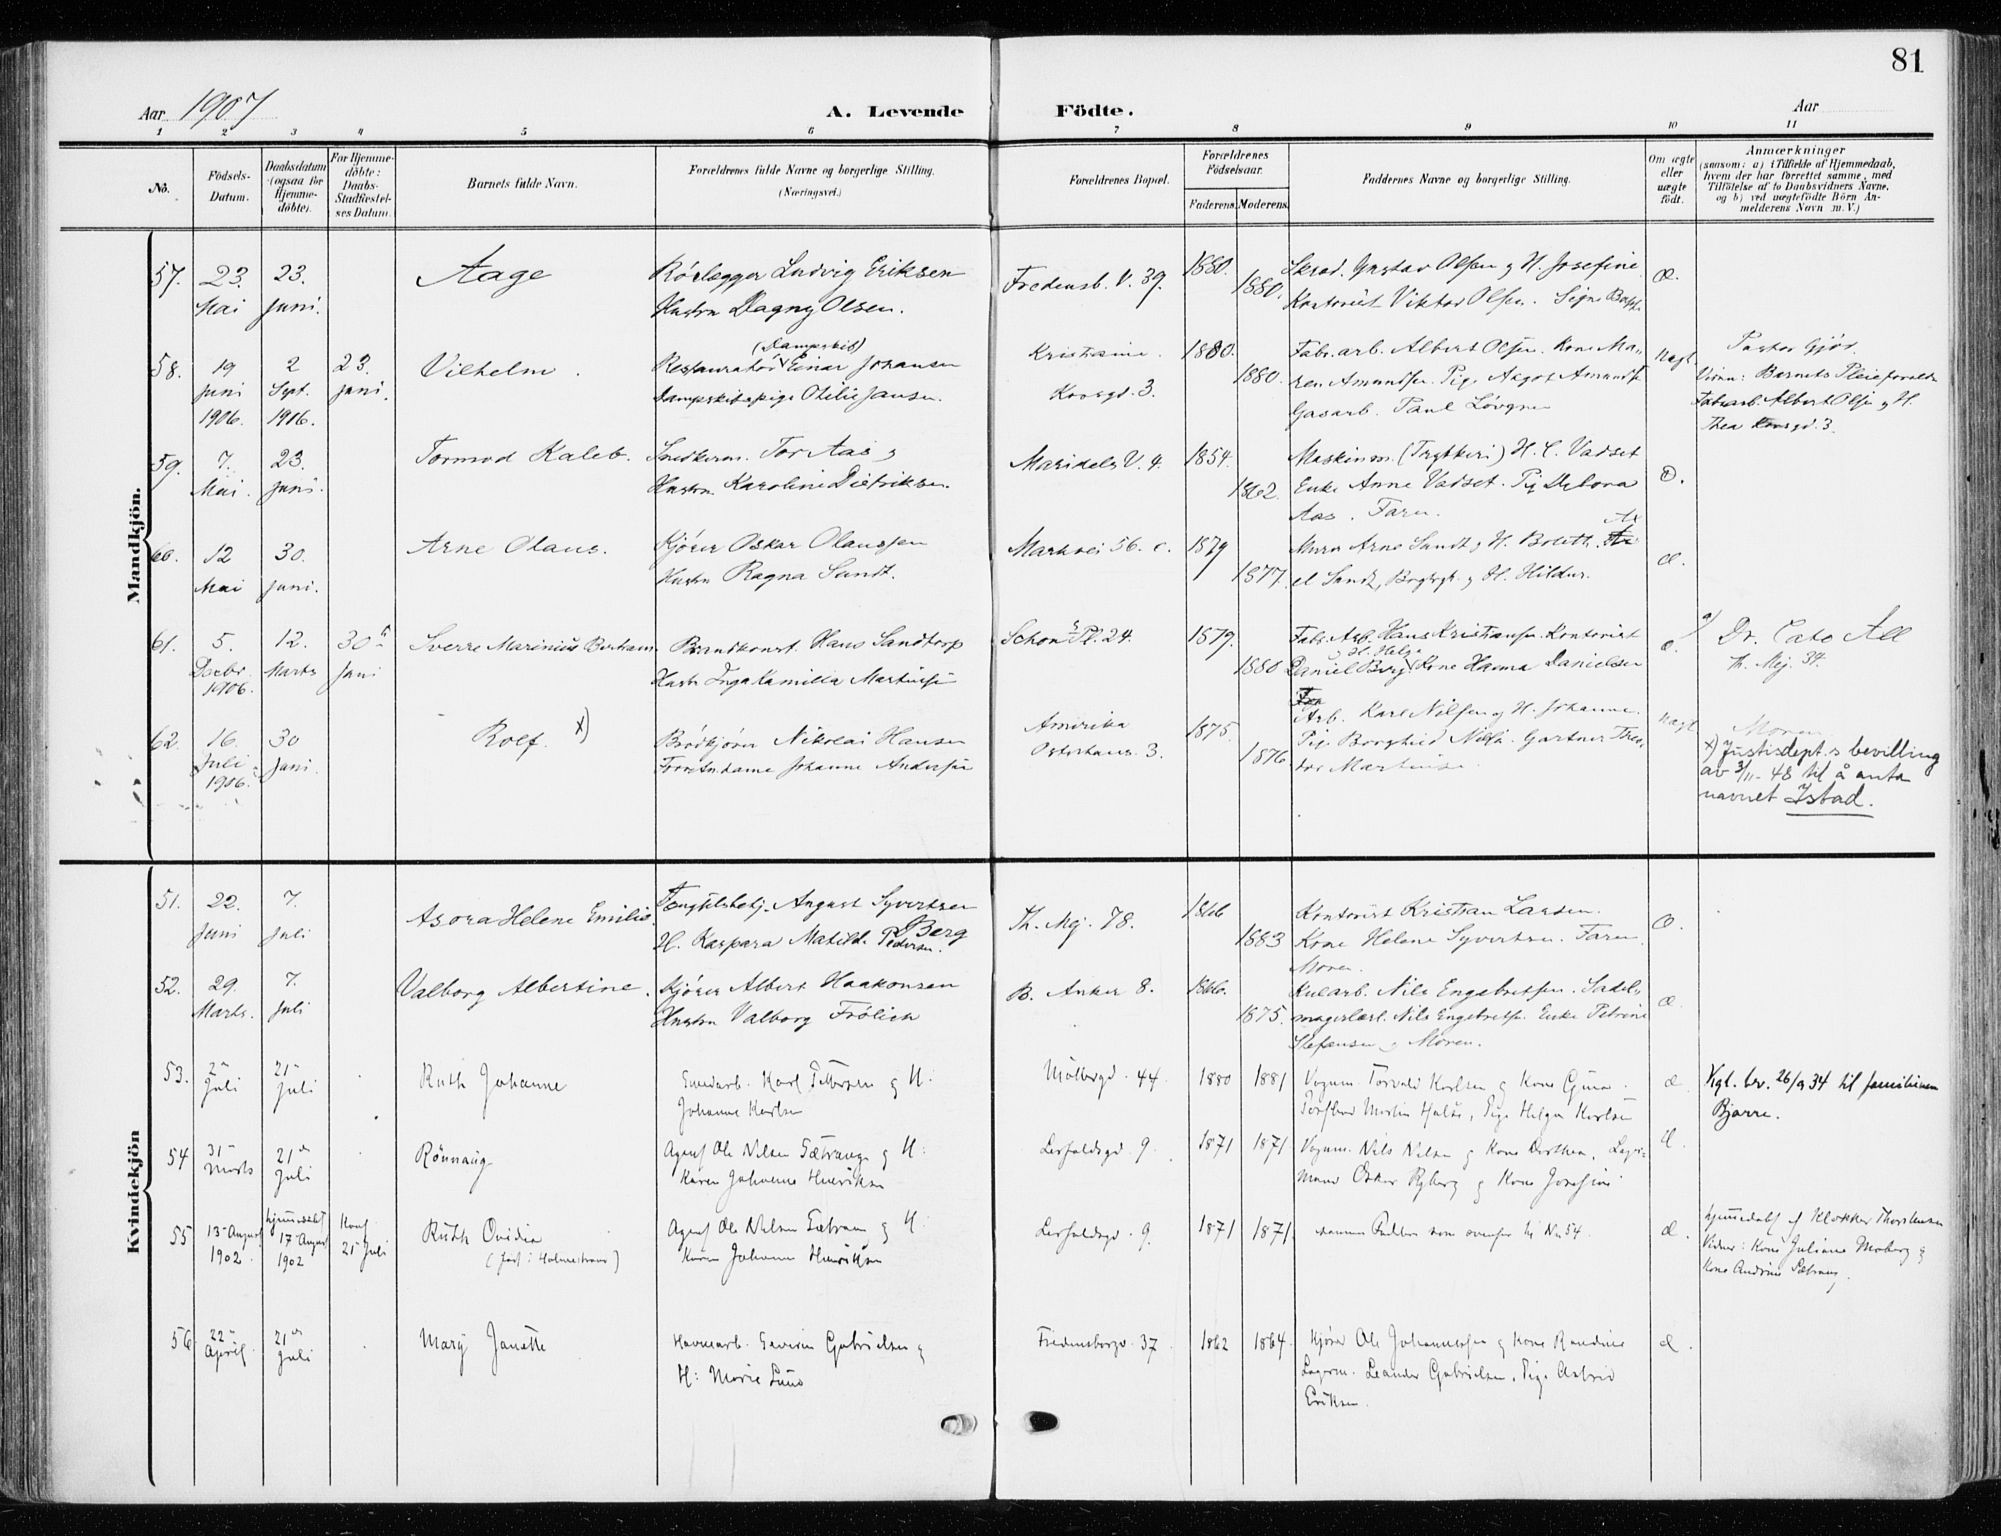 81
Aar 1907
A. Levende Födte.
Aar
1 2 3 4 5 6 7 8 9 10 11
No.
Födsels-
Datum.
Daabsdatum
(ogsaa for
Hjemme-
döbte).
For Hjemme-
döbte:
Daabs-
Stadfæstel-
ses Datum.
Barnets fulde Navn.
Forældrenes fulde Navne og borgerlige Stilling.
(Næringsvei.)
Forældrenes Bopæl.
Forældrenes
Födselsaar.
Faderens. Moderens.
Faddernes Navne og borgerlige Stilling.
Om ægte
eller
uægte
födt.
Anmærkninger
(saasom: a) i Tilfælde af Hjemmedaab,
hvem der har forrettet samme, med
Tilföielse af to Daabsvidners Navne,
og b) ved uægtefödte Börn An-
melderens Navn m. V.)
Mandkjön.
57. 23. Mai 23. Juni.
Aage
Rörlægger Ludvig Eriksen
Hustru Dagny Olsen.
Fredensb. V. 39.
1880. 1880.
Gustav Olsen og H. Josefine
Kontorist Viktor Olsen. Signe
Æ.
58. 19 Juni 1906. 2 Sept. 1906. 23. Juni.
Vilhelm.
(Dampskib)
Restauratör Einar Johansen
Dampskibspige Otilie Jansen.
Kristiania.
Korsgd. 3.
1880. 1880.
Fabr.arb. Albert Olsen. Kone Ma-
ren Amundsen. Pige Aagot Amundsen
Gasarb. Paul Lövgren
uægt
Pastor Gjör.
Vidner: Barnets Pleieforældre
Fabrarb. Albert Olsen og H.
Thea Korsgd. 3.
59. 7. Mai. 23. Juni.
Tormod Kaleb.
Snedkerm. Tor Aas og
Hustru Karoline Didriksen.
Maridals V. 4.
1854. 1862.
Maskinm. (Trykkeri) H. C. Vadset
Enke Anne Vadset. Pige Debora
Aas. Faren.
60. 12 Mai 30. Juni.
Arne Olaus.
Kjörer Oskar Olaussen
Hustru Ragna Sundt.
Markvei 56. c.
1879 1877.
Murer Arne Sundt og H. Bolette. Ax
el Sundt, og H. Hildur.
Æ.
61. 5. Decbr. 1906. 12. Marts 30te Juni
Sverre Marinius
Brandkonst. Hans Sandtorp
Hustr Inga Kamilla Martinsen
Schous Pl. 24.
1879. 1880
Fabr. Arb. Hans Kristiansen. Kontorist
og H. Helga
Daniel Berg. Kone Hanna Danielsen
æ.
a) Dr. Cato All
Th. Mej. 34.
62. 16. Juli 1906. 30 Juni.
Rolf. x)
Brödkjörer Nikolai Hansen
Johanne Andersen
Amerika
Osterhaus. 3.
1875. 1876.
Arb. Karl Nilsen og H. Johanne.
Pige Borghild Nilsen. Gartner Theo-
dor Martinsen
uægt
Moren
x) Justisdept.s bevilling
av 3/11-48 til å anta
navnet Istad.
Kvindekjön
51. 22. Juni 7. Juli
Asora Helene Emilie
Fængselsbetj. August Syvertsen
Berg
H. Kaspara Matilde Pedersen.
Th. Mej. 78.
1866 1883
Kontorist Kristian Larsen.
Kone Helene Syvertsen. Faren
Moren.
52. 29. Marts. 7. Juli
Valborg Albertine.
Kjörer Albert Haakonsen
Hustru Valborg Frölich
B. Anker 8.
1866. 1875.
Kularb. Nils Engebretsen. Sadel-
magerlærl. Nils Engebretsen. Enke Petrine
Stefansen og Moren.
æ.
53. 2den Juli 21de Juli
Ruth Johanne
Karl Pettersen og H:
Johanne Karlsen
Möllergd. 44
1880 1881
Vognm. Torvald Karlsen og Kone Gina.
Martin, Pige Helga Karlsen
æ
Kgl. bev. 26/9 34 til familienavn
Bjarre.
54 31te Marts 21de Juli
Rönnaug
Agent Ole Nilsen Sætrang og H:
Karen Johanne Henriksen
Lerfaldsgd 9.
1871 1871
Vognm. Nils Nilsen og Kone Dorthea, Lager-
mand Oskar Ryberg og Kone Josefine
55 13de August 1902 hjemmedöbt 17de August 1902 Konf 21de Juli
Ruth Ovidia
(født i Holmestrand)
Agent Ole Nilsen Sætrang og H:
Karen Johanne Henriksen
Lerfaldsgd. 9.
1871 1871
samme Faddere som ovenfor til No 54.
æ.
hjemmedøbt af Klokker Thorstensen
Vidner: Kone Juliane Moberg og
Kone Andrine Sætrang.
56 22de April 21de Juli
Mary Janette
Havnearb. Severin Gabrielsen og
H: Marie Lund
Fredensborgv. 37
1862 1864
Kjörer Ole Johannessen og Kone Randine
Lagerm. Leander Gabrielsen, Pige Astrid
Eriksen.
æ.